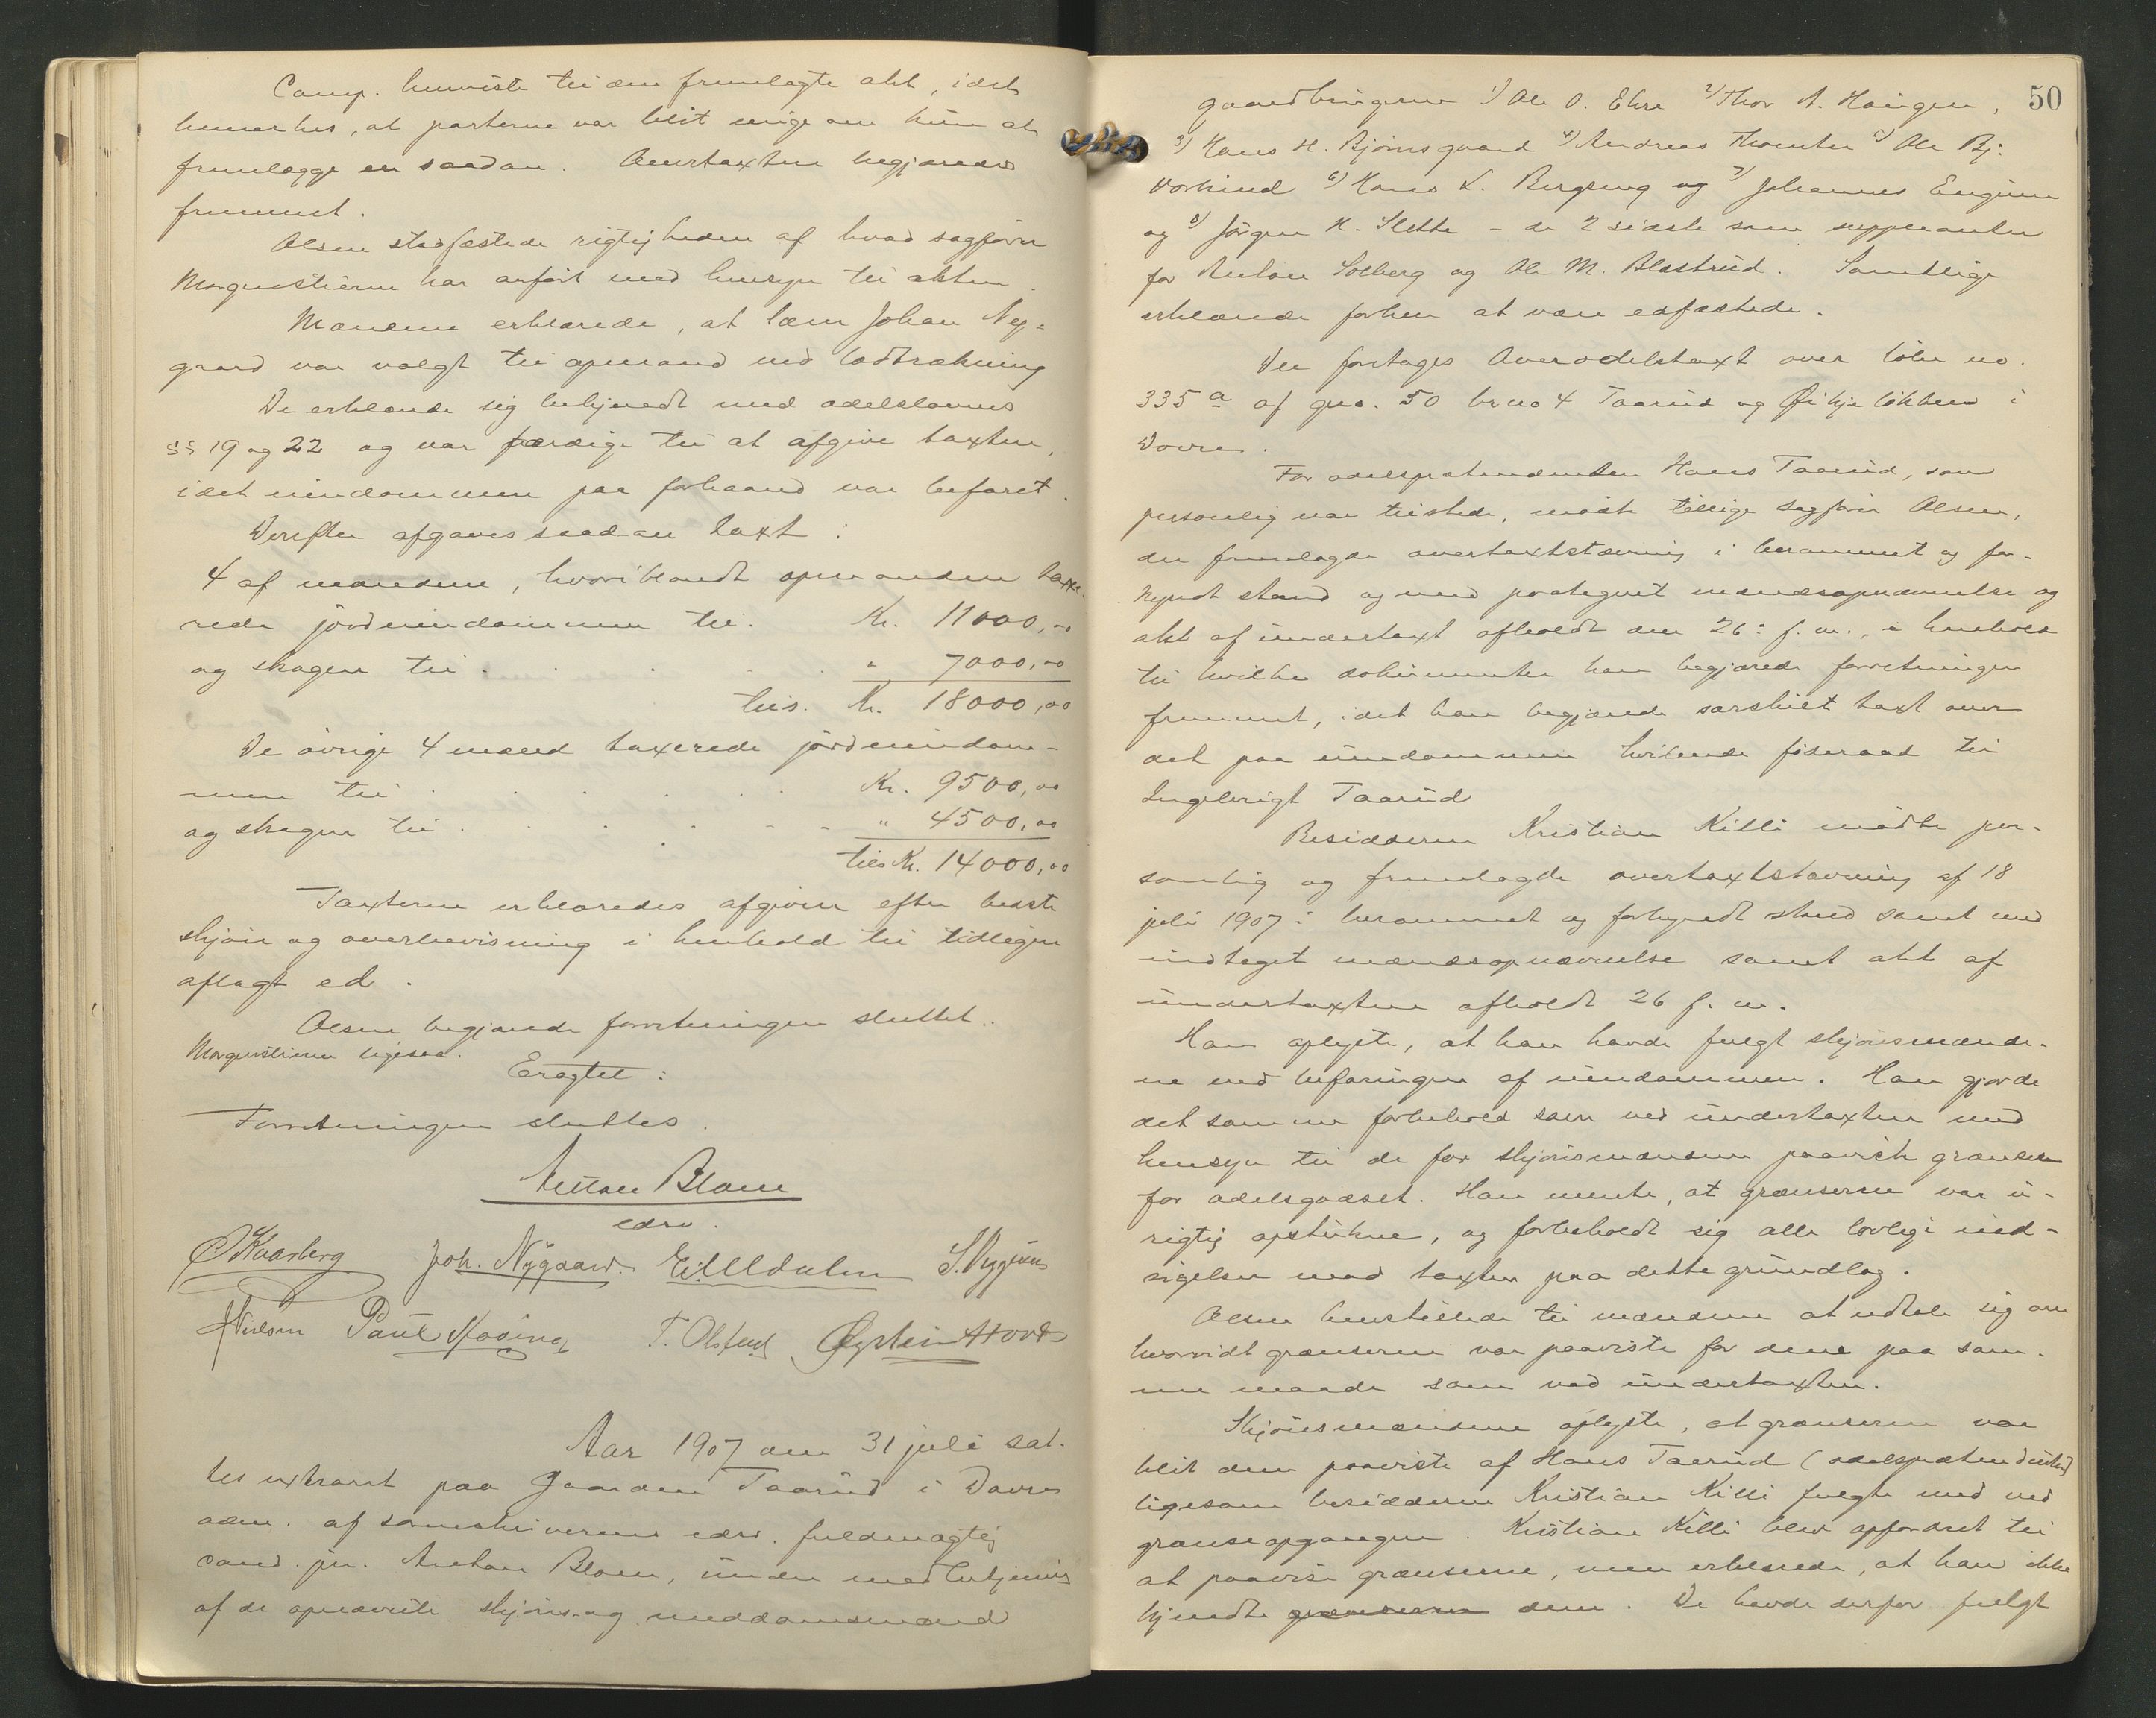 Comp. henviste til den fremlagte akt, idet
bemerkes, at parterne var blit enige om kun at
fremlægge en saadan. Overtaxten begjæredes
fremmet.
Olsen stadfæstede rigtigheden af hvad sagfører
Morgenstierne har anført med hensyn til akten.
Mændene erklærede, at lærer Johan Ny-
gaard var valgt til opmand ved lodtrækning
De erklærede sig bekjendt med odelslovens
§§ 19 og 22 og var færdige til at afgive taxten,
idet eiendommen paa forhaand var befaret.
Derefter afgaves saadan taxt:
4 af mændene, hvoriblandt opmanden taxe-
rede jordeiendommen til. Kr. 11000,00
og skogen til . . . . " 7000,00
tils. Kr. 18000,00
De øvrige 4 mænd taxerede jordeiendom-
men til . . . . Kr. 9500,00
og skogen til . . . . " 4500,00
tils Kr. 14000,00
Taxterne erklæredes afgivne efter bedste
skjøn og overbevisning i henhold til tidligere
aflagt ed.
Olsen begjærede forretningen sluttet.
Morgenstierne ligesaa.
Eragtet:
Forretningen sluttes.
Anton Blom
edsv.
O Kaasberg Joh. Nygaard. E. Uldalen S. Bryggesaa
H Nielsen Paul T. Olstad Øystein Hovde
Aar 1907 den 31 juli sat-
tes extraret paa Gaarden Taarud i Dovre
adm. af sorenskriverens edsv. fuldmægtig
cand. jur. Anton Blom, under medbetjening
af de opnævnte skjøns- og meddomsmænd
50
gaardbrugerne 1) Ole O. Ekre 2) Thor A. Haugen,
3) Hans H. Bjørnsgaard 4) Andreas 5) Ole Bj:
6) Hans L. og 7) Johannes Engum
og 8) Jörgen K. Slette – de 2 sidste som suppleanter
for Anton Solberg og Ole M. Blæstrud. Samtlige
erklærede forhen at være edfæstede.
Der foretages Overodelstaxt over løbe no.
335 a af gno. 50 br no 4 Taarud og Øikjeløkken i
Dovre.
For odelsprætendenten Hans Taarud, som
personlig var tilstede, mødte tillige sagfører Olsen,
der fremlagde overtaxtstævning i berammet og for-
kyndt stand og med paategnet mændsopnævnelse og
akt af undertaxt afholdt den 26: f. m., i henhold
til hvilke dokumenter han begjærede forretningen
fremmet, idet han begjærede særskilt taxt over
det paa eiendommen hvilende føderaad til
Ingebrigt Taarud
Besidderen Kristian Killi mødte per-
sonlig og fremlagde overtaxtstævning af 18
juli 1907 i berammet og forkyndt stand samt med
indtaget mændsopnævnelse samt akt af
undertaxten afholdt 26 f. m.
Han oplyste, at han havde fulgt skjønsmænde-
ne ved befaringen af eiendommen. Han gjorde
det samme forbehold som ved undertaxten med
hensyn til de for skjønsmændene paaviste grænser
for odelsgodset. Han mente, at grænserne var u-
rigtig opstukne, og forbeholdt sig alle lovlige ind-
sigelser mod taxten paa dette grundlag.
Olsen henstillede til mændene at udtale sig om
hvorvidt grænserne var paaviste for dem paa sam-
me maade som ved undertaxten.
Skjønsmændene oplyste, at grænserne var
blit dem paaviste af Hans Taarud (odelsprætendenten)
ligesom besidderen Kristian Killi fulgte med ved
grænseopgangen. Kristian Killi blev opfordret til
at paavise grænserne, men erklærede, at han ikke
kjendte grænserne dem. De havde derfor fulgt